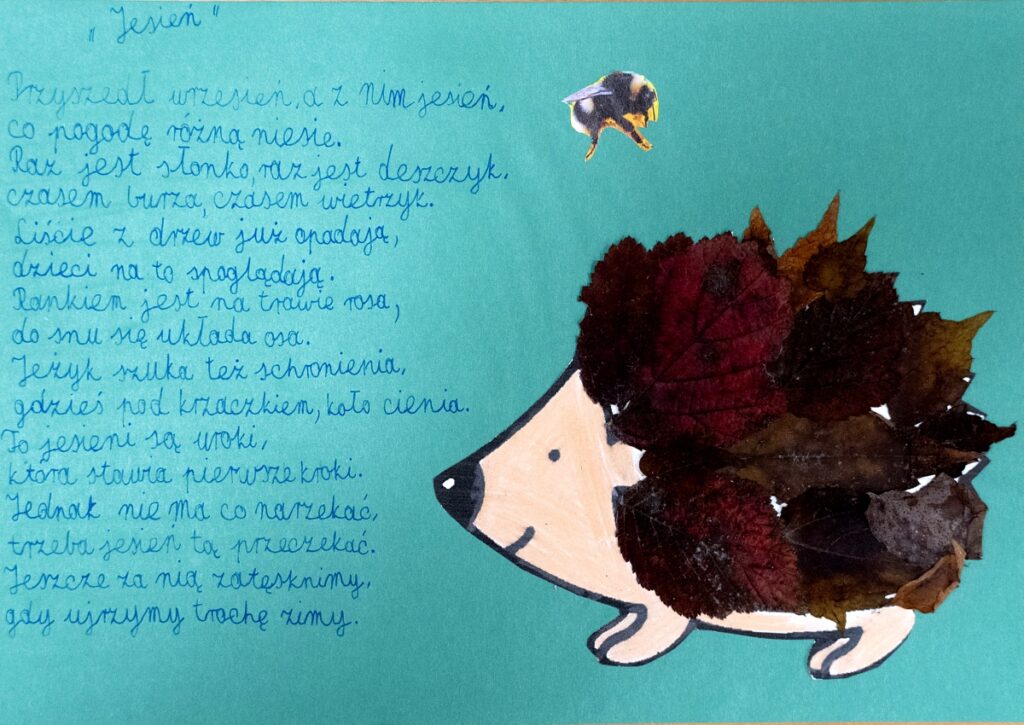 „Jesień"
Przyszedł wrzesień, a z nim jesień,
co pogodę różną niesie.
Raz jest słonko, raz jest deszczyk.
czasem burza, czasem wietrzyk.
Liście z drzew już opadają,
dzieci na to spoglądają.
Rankiem jest na trawie rosa,
do snu się układa osa.
Jeżyk szuka też schronienia,
gdzieś pod krzaczkiem, koło cienia.
To jesieni są uroki,
która stawia pierwsze kroki.
Jednak nie ma co narzekać,
trzeba jesień tą przeczekać.
Jeszcze za nią zatęsknimy,
gdy ujrzymy trochę zimy.